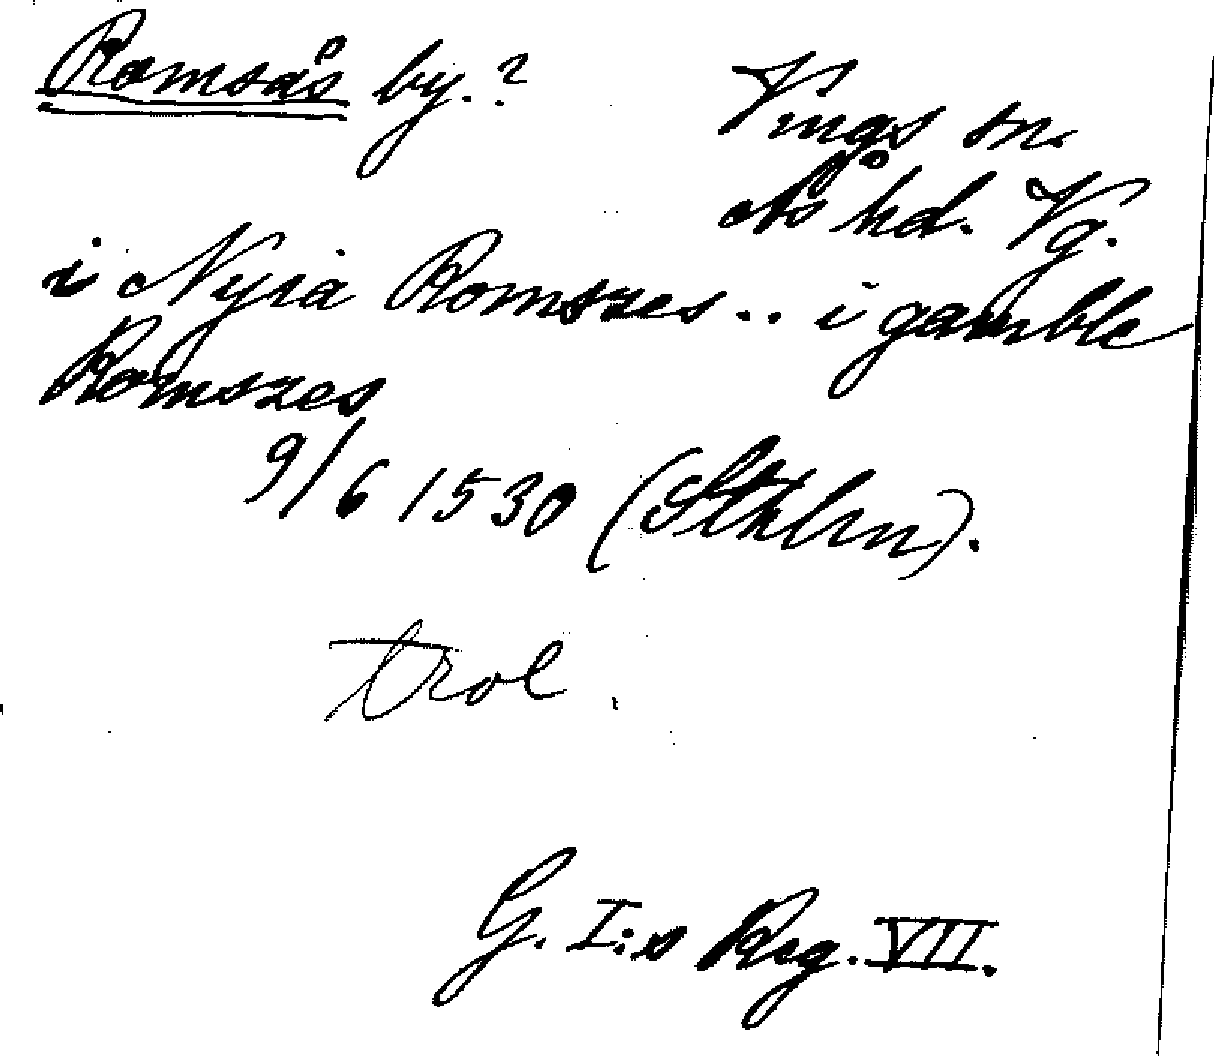 Romsås by.?
Vings sn.
Ås hd. Vg.
i Nyia Romszes.. i gamble
Romszes
9/6 1530 (Sthlm).
trol
G. I:s Reg. VII.